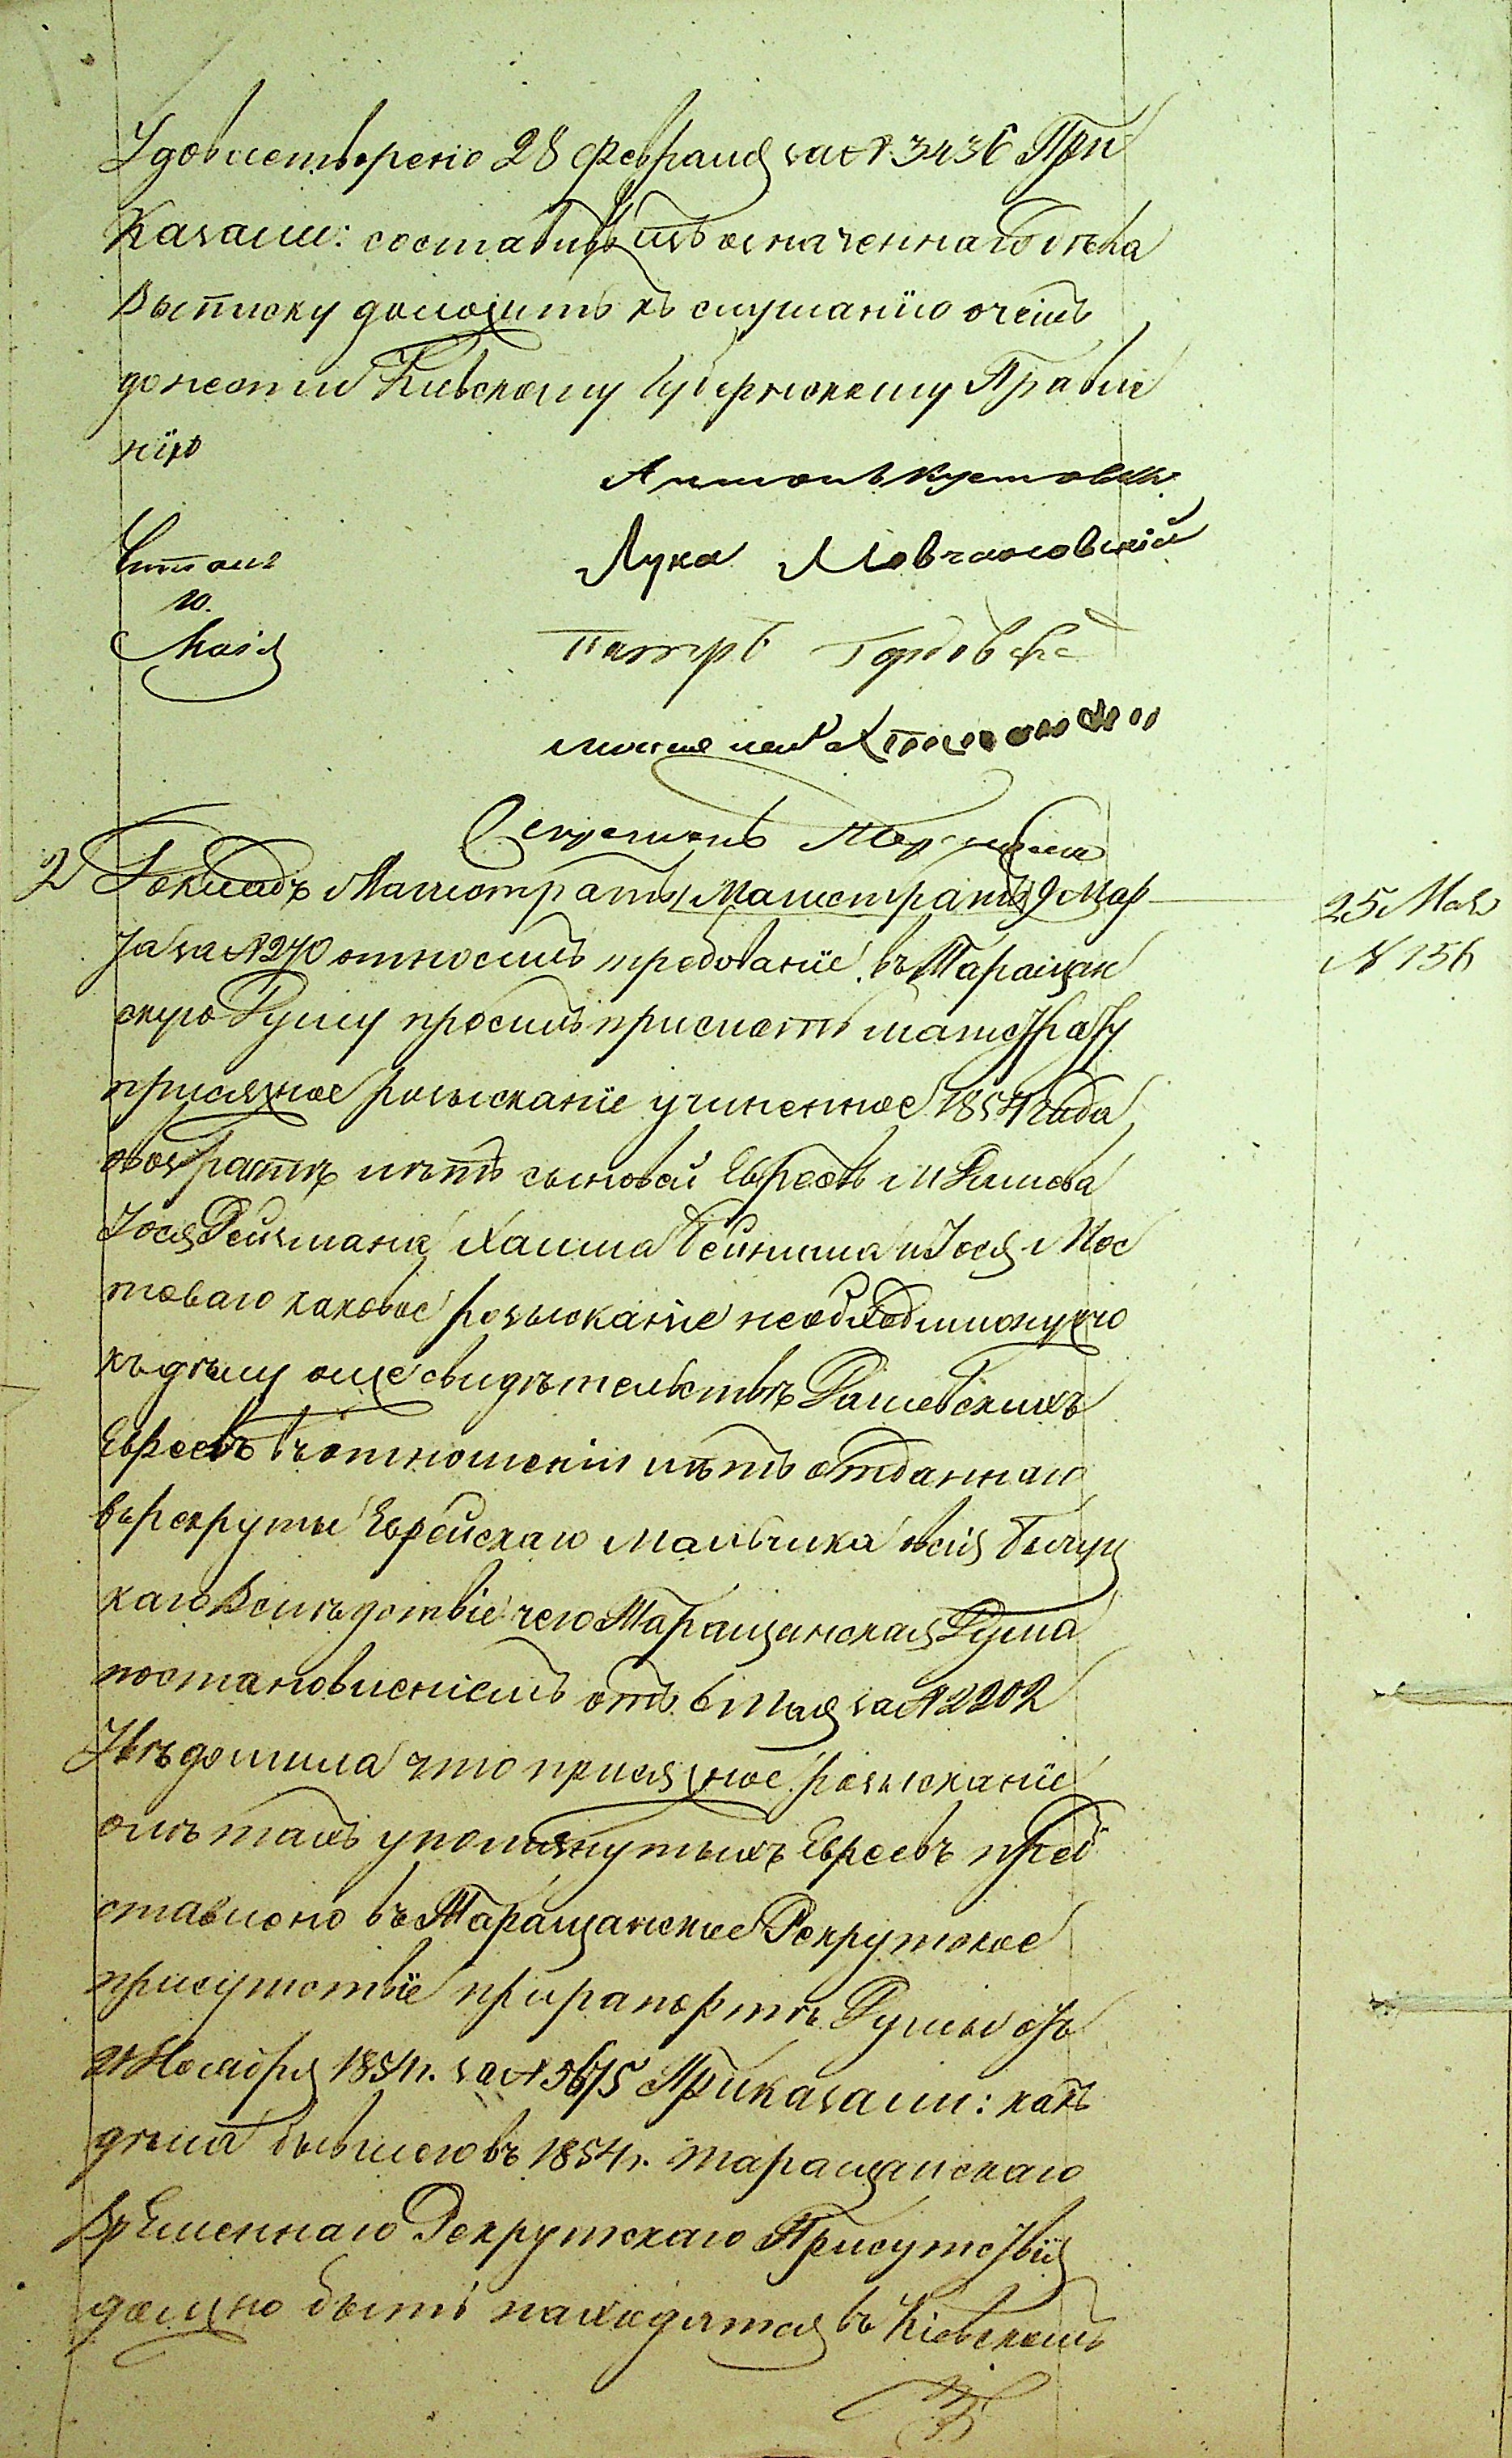 Удовлетворенiе 28 Февраля за № 3436 При
казали: составивъ изъ означеннаго дѣла
выписку доложить къ слушанiю о чемъ
донести Кiевскому Губернскому Правле
нiю
Антонъ
Лука Мовчановскiй
Читалъ
20.
Маiя
Петръ
Секретарь
2 Докладъ Магистрата Магистратъ 9 Мар
та за № 270 относилъ требованiе въ Таращан
скую Думу просилъ прислать магистрату
присяжное розысканiе учиненное 1854 года
о возрастѣ лѣтъ сыновей Евреевъ М Рашева
Iося Рейзмана Хаима Бейниша и Iося Мос
товаго каковое розысканiе необходимо нужно
къ дѣлу о лжесвидѣтельствѣ Рашевскихъ
Евреевъ въ отношенiи лѣтъ отданнаго
въ рекруты Еврейскаго мальчика
каго Вслѣдствiе чего Таращанская Дума
постановленiемъ отъ 6 Мая за № 2202
Увѣдомила что присяжное розысканiе
о лѣтахъ упомянутыхъ Евреевъ пред
ставлено въ Таращанское Рекрутское
присутствiе при рапортѣ Думы отъ
Ноября 1854 г. за № 5675 Приказали: какъ
дѣла бывшего въ 1854 г. Таращанскаго
Временнаго Рекрутскаго Присутствiя
должно быть находятся въ Кiевскомъ
25 Мая
№ 156